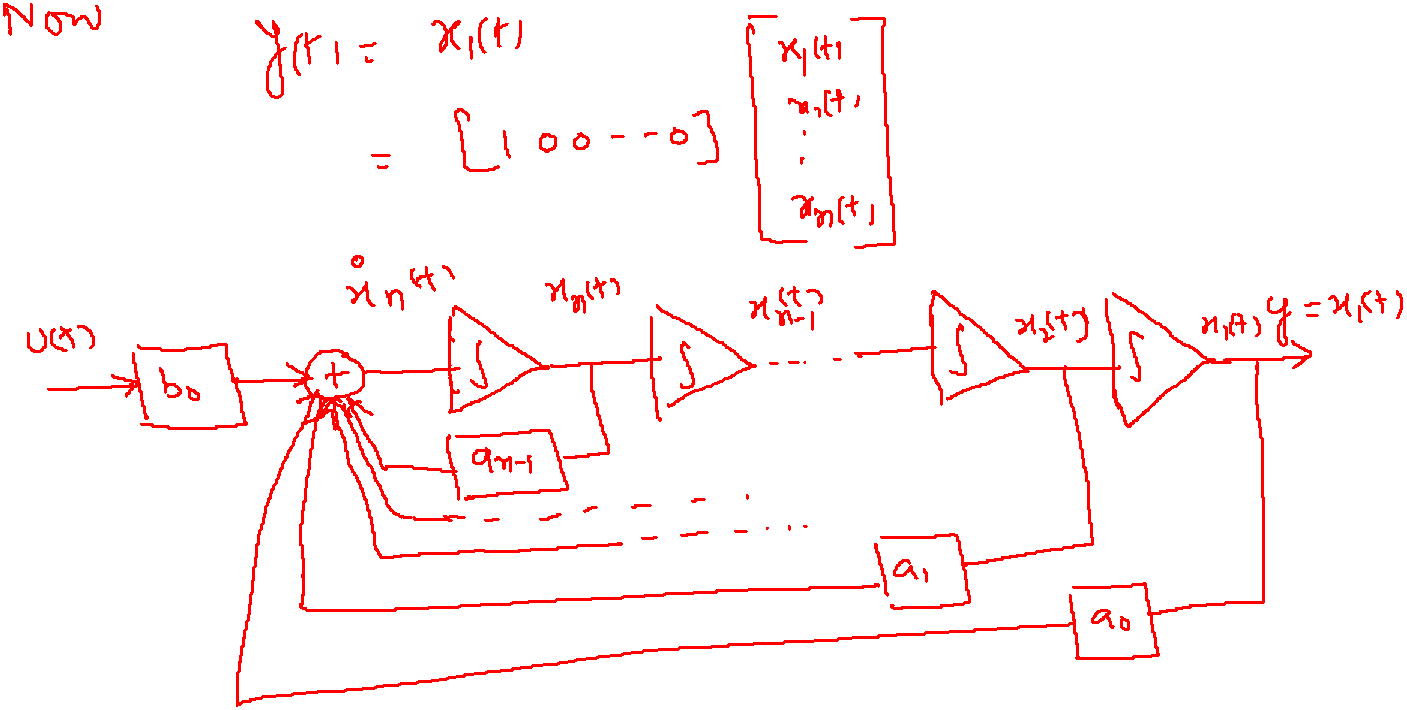 Now
y(t) = x₁(t)
= [1 0 0 - - 0] [x₁(t)
x₂(t)
⋮
xₙ(t)]
ẋₙ(t) xₙ(t) xₙ₋₁(t) x₂(t) x₁(t) y = x₁(t)
U(t) b₀ + ∫ ∫ ... ∫ ∫
aₙ₋₁
a₁
a₀